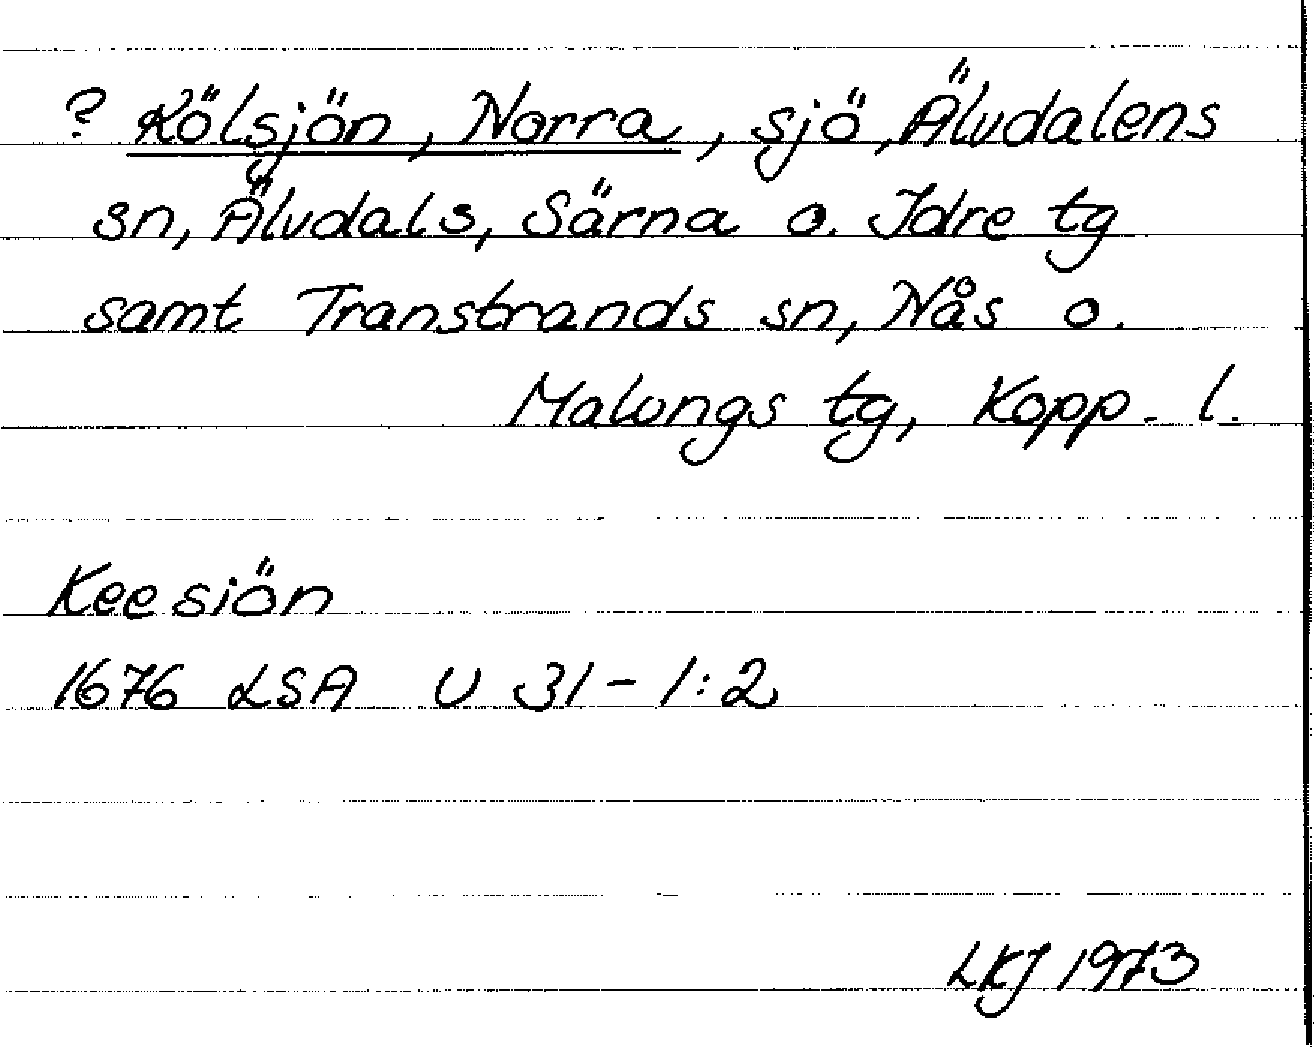 ? Kölsjön, Norra, sjö, Älvdalens
sn, Älvdals, Särna o. Idre tg
samt Transtrands sn, Nås o.
Malungs tg, Kopp. l.
Keesiön
1676 LSA U 31-1:2
LKJ 1973